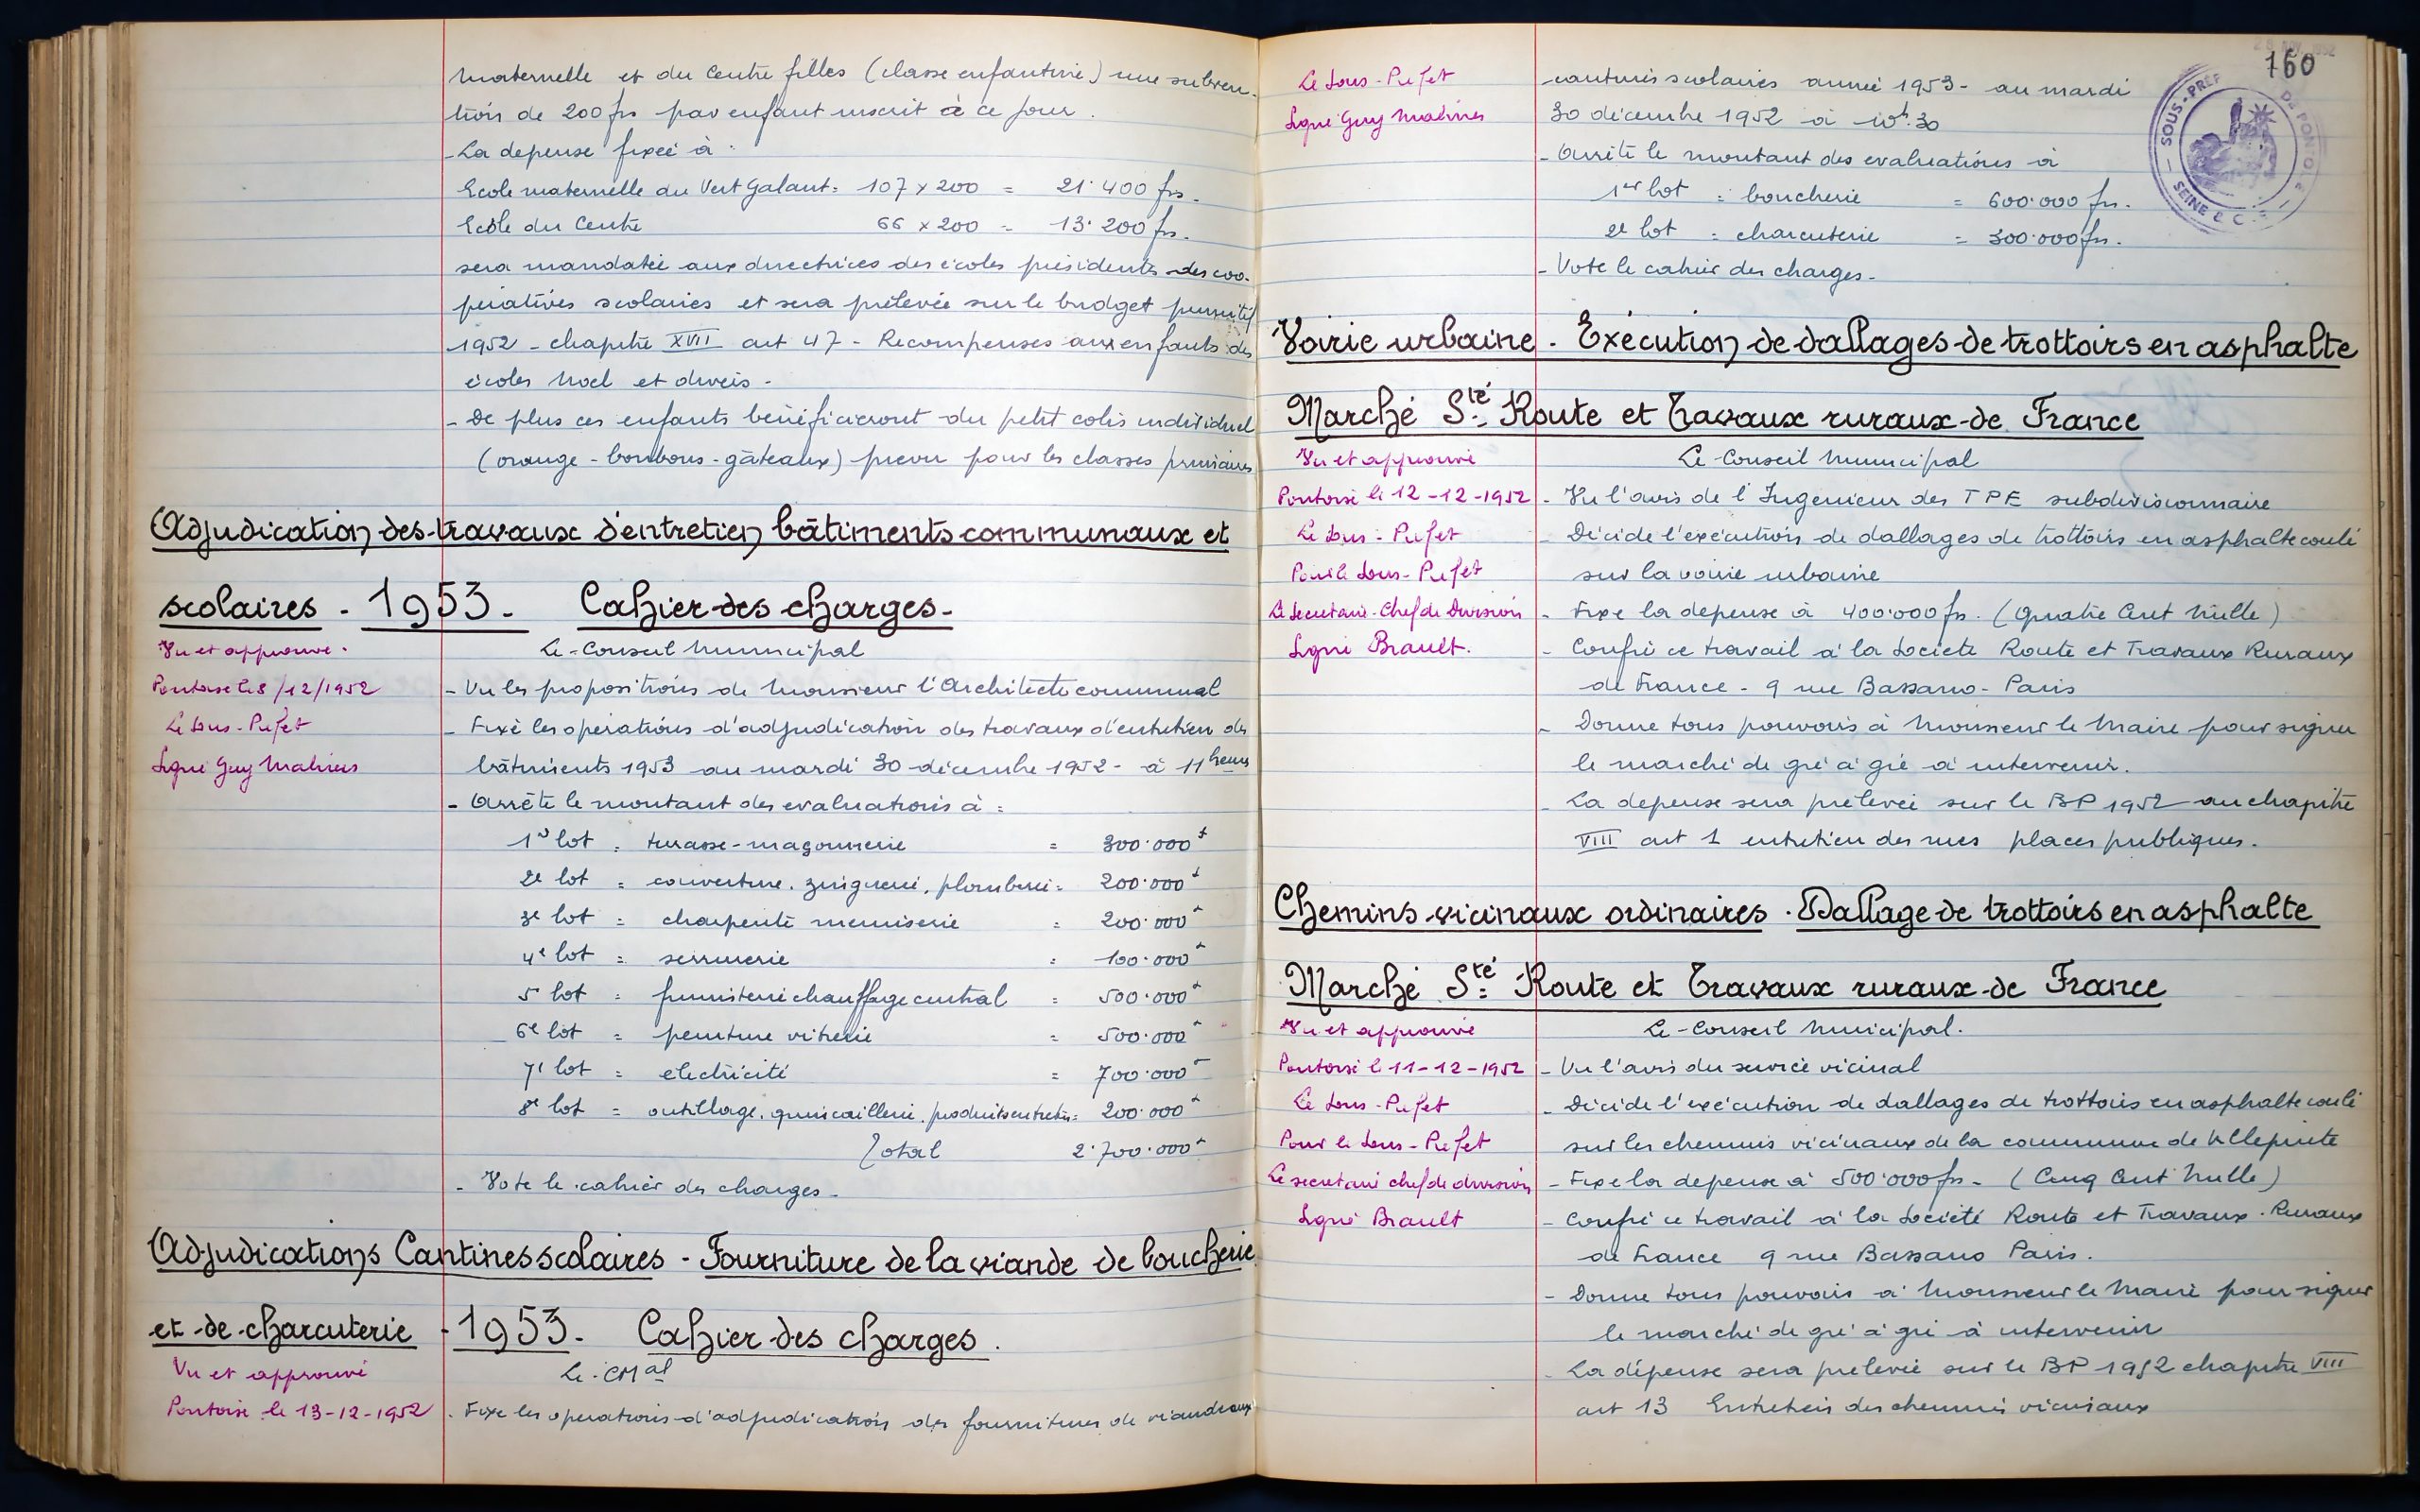 maternelle et du Centre filles (classe enfantine) une subven-
tion de 200 frs par enfant inscrit à ce jour.
- La depense fixeé à :
Ecole maternelle du Vert Galant : 107 x 200 = 21.400 frs.
Ecole du Centre 66 x 200 = 13.200 frs.
sera mandatée aux directrices des écoles présidentes des coo-
pératives scolaires et sera prélevée sur le budget primitif
1952 - chapitre XVII art 47 - Recompenses aux enfants des
écoles Noel et divers -
- De plus ces enfants bénéficieront du petit colis individuel
(orange - bonbons - gâteaux) prévu pour les classes primaires
Adjudication des travaux d'entretien bâtiments communaux et
scolaires - 1953. Cahier des charges -
Vu et approuvé.
Pontoise le 8/12/1952
Le Sous-Prefet
Signé Guy Malines
Le Conseil Municipal
- Vu les propositions de Monsieur l'Architecte communal
- Fixe les opérations d'adjudication des travaux d'entretien des
bâtiments 1953 au mardi 30 décembre 1952 - à 11 heures
- Arrête le montant des evaluations à :
1er lot = terrasse - maçonnerie = 300.000 f
2e lot = couverture, zinguerie, plomberie = 200.000 f
3e lot = charpente menuiserie = 200.000 f
4e lot = serrurerie = 100.000 f
5e lot = fumisterie chauffage central = 500.000 f
6e lot = peinture vitrerie = 500.000 f
7e lot = électricité = 700.000 f
8e lot = outillage, quincaillerie, produits entretien = 200.000 f
Total 2.700.000 f
- Vote le cahier des charges -
Adjudications Cantines scolaires - Fourniture de la viande de boucherie
et de charcuterie - 1953. Cahier des charges.
Vu et approuvé
Pontoise le 13-12-1952
Le CMal
- Fixe les operations d'adjudication des fournitures de viande aux
160
SOUS-PREF DE PONTOISE
SEINE & O
Le Sous-Prefet
Signé Guy Malines
cantines scolaires année 1953 - au mardi
30 décembre 1952 à 10h.30
- Arrête le montant des evaluations à
1er lot = boucherie = 600.000 frs.
2e lot = charcuterie = 300.000 frs.
- Vote le cahier des charges -
Voirie urbaine - Exécution de dallages de trottoirs en asphalte
Marché Sté Route et Travaux ruraux de France
Vu et approuvé
Pontoise le 12-12-1952
Le Sous-Prefet
Pour le Sous-Prefet
Le Secretaire-Chef de Division
Signé Brault.
Le Conseil Municipal
- Vu l'avis de l'Ingenieur des TPE subdivisionnaire
- Décide l'exécution de dallages de trottoirs en asphalte coulé
sur la voirie urbaine
- Fixe la depense à 400.000 frs. (Quatre Cent Mille)
- Confie ce travail à la Societe Route et Travaux Ruraux
de France - 9 rue Bassano - Paris
- Donne tous pouvoirs à Monsieur le Maire pour signer
le marché de gré à gré à intervenir.
- La depense sera prélevée sur le BP 1952 au chapitre
VIII art 1 entretien des rues places publiques.
Chemins vicinaux ordinaires - Dallage de trottoirs en asphalte
Marché Sté Route et Travaux ruraux de France
Vu et approuvé
Pontoise le 11-12-1952
Le Sous-Prefet
Pour le Sous-Prefet
Le secretaire chef de division
Signé Brault
Le Conseil Municipal.
- Vu l'avis du service vicinal
- Décide l'exécution de dallages de trottoirs en asphalte coulé
sur les chemins vicinaux de la commune de Villepinte
- Fixe la depense à 500.000 frs - (Cinq Cent Mille)
- Confie ce travail à la Société Route et Travaux Ruraux
de France 9 rue Bassano Paris.
- Donne tous pouvoirs à Monsieur le Maire pour signer
le marché de gré à gré à intervenir
- La dépense sera prélevée sur le BP 1952 chapitre VIII
art 13 Entretien des chemins vicinaux